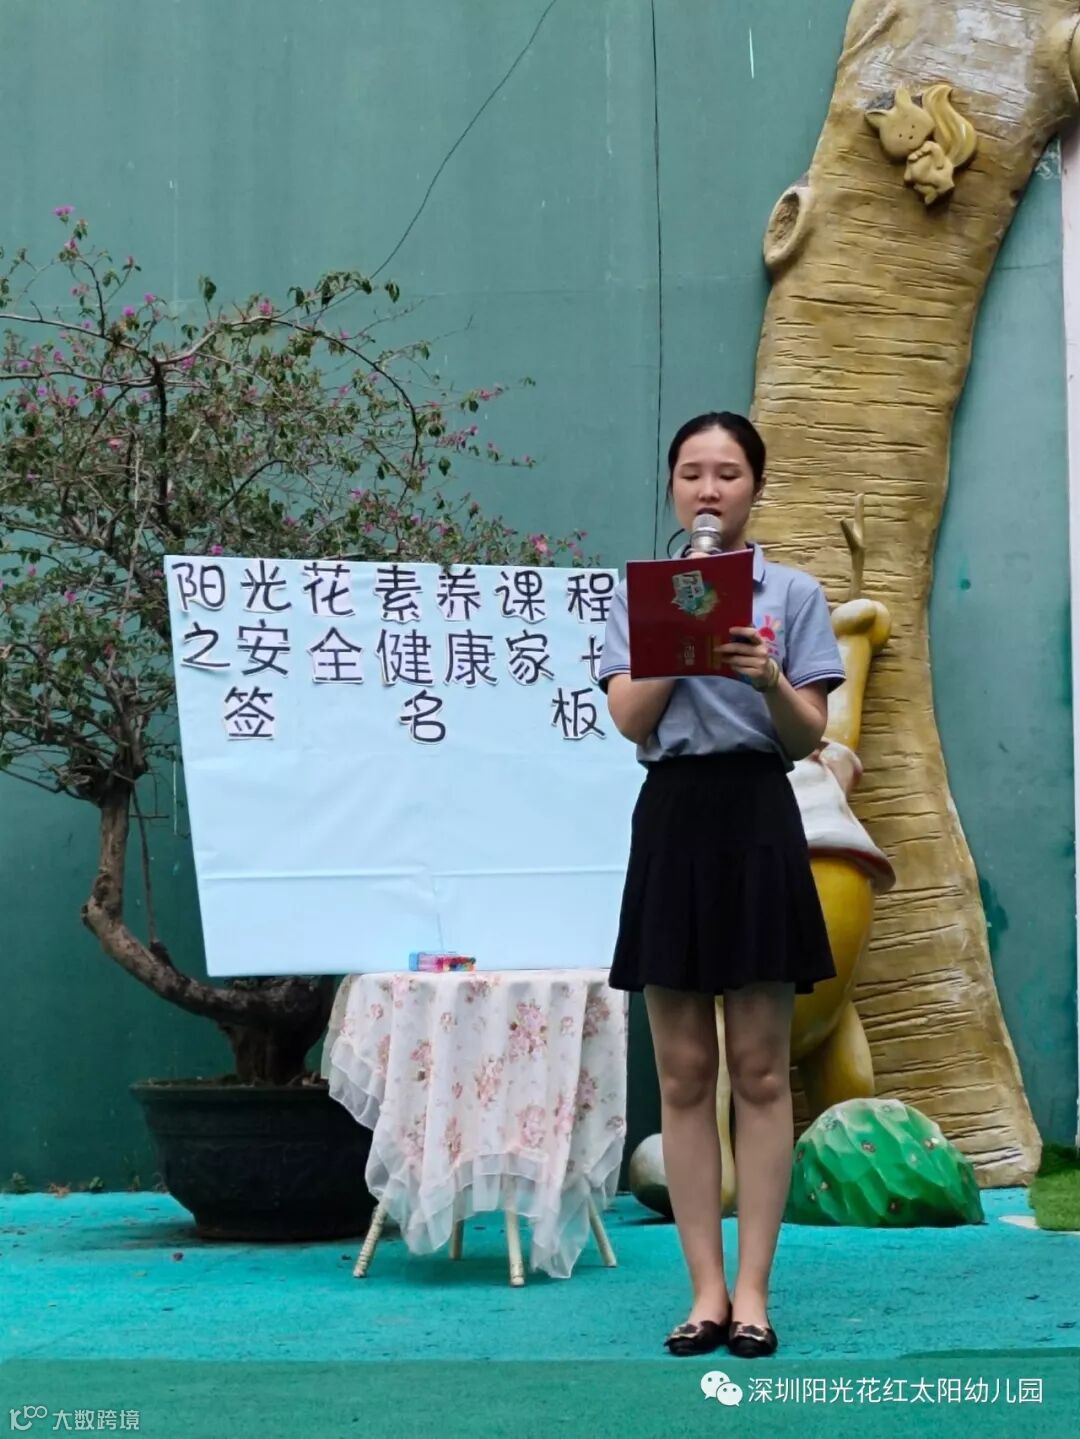 阳光花素养课程
之安全健康家长
签名板
深圳阳光花红太阳幼儿园
大数跨境